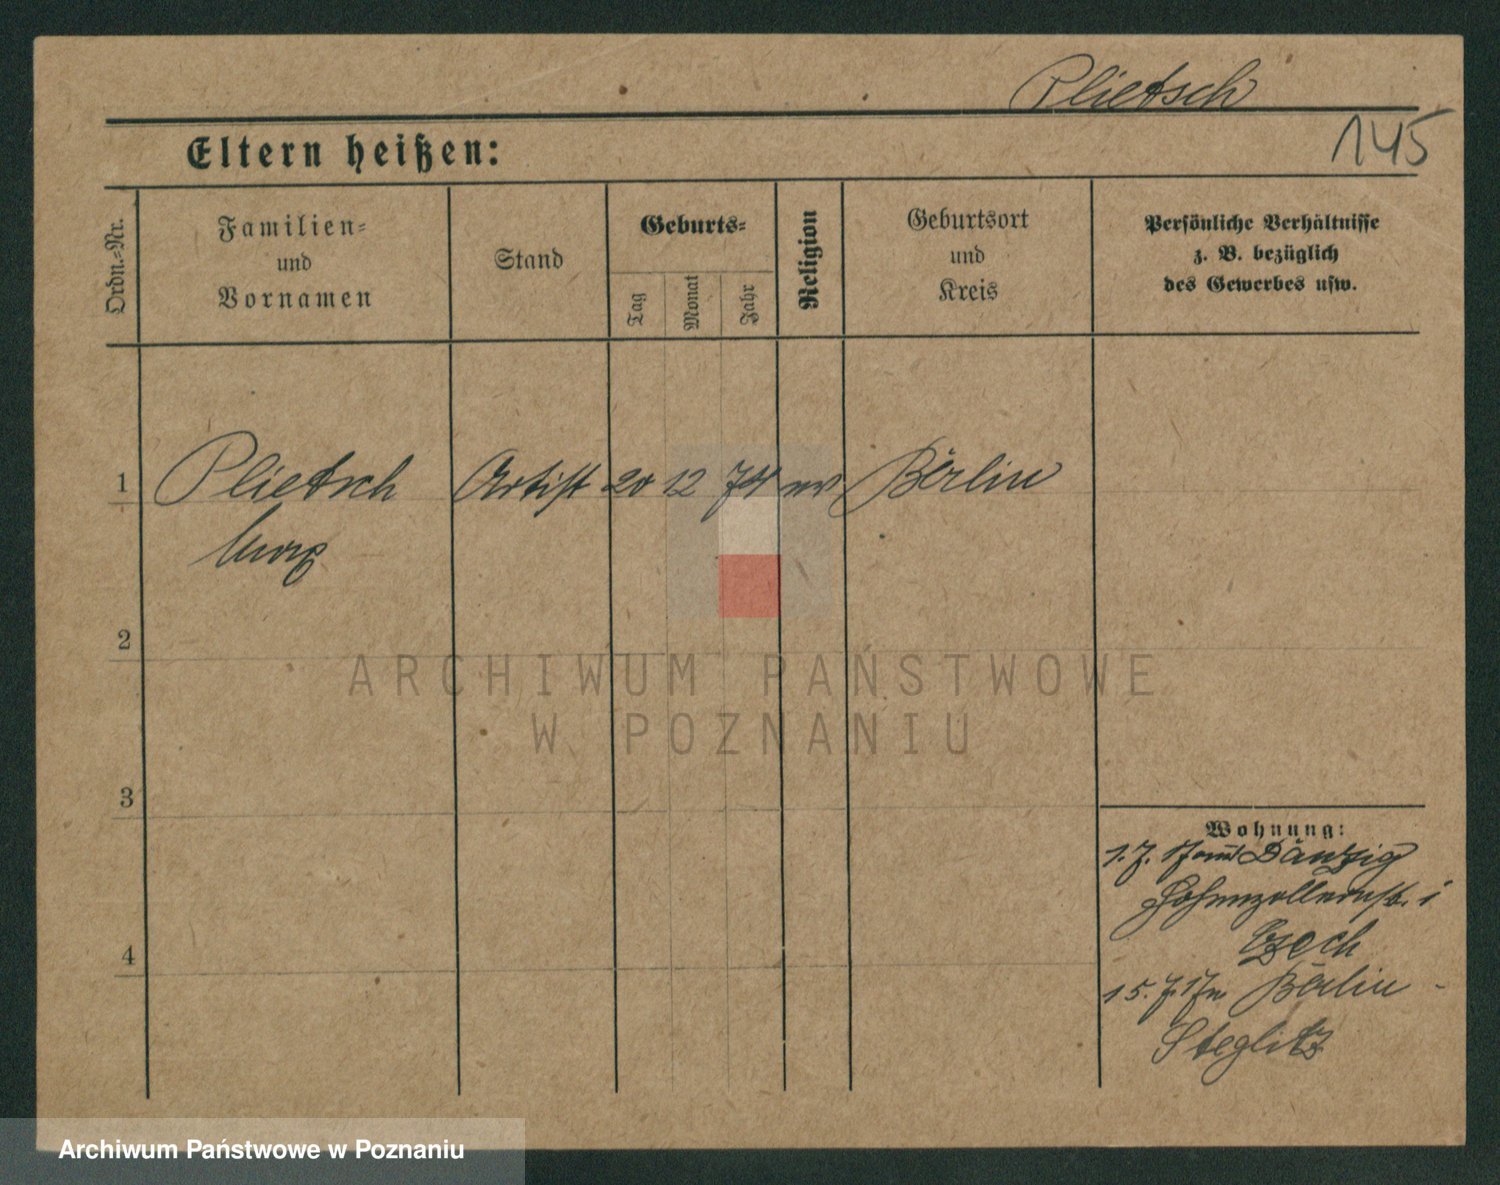 Plietsch
145
Eltern heißen:
Ordn.-Nr.
Familien-
und
Vornamen
Stand
Geburts-
Tag
Monat
Jahr
Religion
Geburtsort
und
Kreis
Persönliche Verhältnisse
z. B. bezüglich
des Gewerbes usw.
1
Plietsch
Artist
20
12
74
Berlin
2
ARCHIWUM PAŃSTWOWE
W POZNANIU
3
Wohnung:
1. 7. 17 Danzig
Hohenzollernstr.
4
15. 7. 17 Berlin -
Steglitz
Archiwum Państwowe w Poznaniu